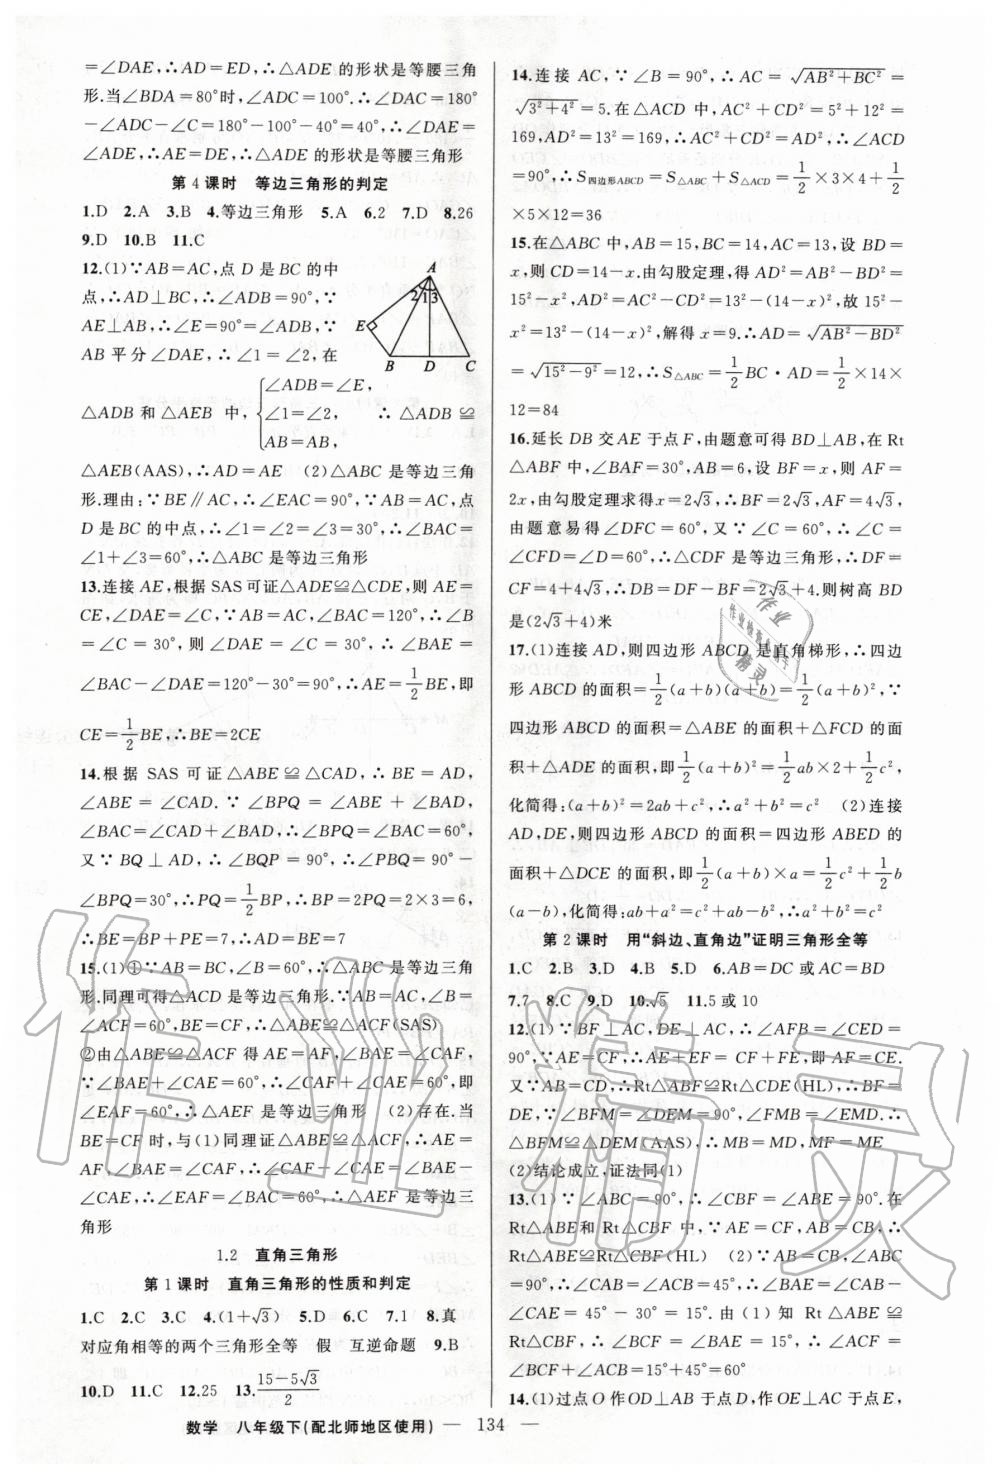 =∠DAE,∴AD=ED,∴△ADE的形状是等腰三角
形.当∠BDA=80°时,∠ADC=100°.∴∠DAC=180°
-∠ADC-∠C=180°-100°-40°=40°,∴∠DAE=
∠ADE,∴AE=DE,∴△ADE的形状是等腰三角形
第4课时 等边三角形的判定
1.D 2.A 3.B 4.等边三角形 5.A 6.2 7.D 8.26
9.D 10.B 11.C
12.(1)∵AB=AC,点D是BC的中
点,∴AD⊥BC,∴∠ADB=90°,∵
AE⊥AB,∴∠E=90°=∠ADB,∵
AB平分∠DAE,∴∠1=∠2,在
A
2 1 3
E
B D C
△ADB和△AEB中,{∠ADB=∠E, ∠1=∠2, AB=AB, ∴△ADB≌
△AEB(AAS),∴AD=AE (2)△ABC是等边三角
形.理由:∵BE∥AC,∴∠EAC=90°,∵AB=AC,点
D是BC的中点,∴∠1=∠2=∠3=30°,∴∠BAC=
∠1+∠3=60°,∴△ABC是等边三角形
13.连接AE,根据SAS可证△ADE≌△CDE,则AE=
CE,∠DAE=∠C,∵AB=AC,∠BAC=120°,∴∠B
=∠C=30°,则∠DAE=∠C=30°,∴∠BAE=
∠BAC-∠DAE=120°-30°=90°,∴AE=1/2BE,即
CE=1/2BE,∴BE=2CE
14.根据SAS可证△ABE≌△CAD,∴BE=AD,
∠ABE=∠CAD.∵∠BPQ=∠ABE+∠BAD,
∠BAC=∠CAD+∠BAD,∴∠BPQ=∠BAC=60°,
又∵BQ⊥AD,∴∠BQP=90°,∴∠PBQ=90°-
∠BPQ=30°,∴PQ=1/2BP,∴BP=2PQ=2×3=6,
∴BE=BP+PE=7,∴AD=BE=7
15.(1)①∵AB=BC,∠B=60°,∴△ABC是等边三角
形.同理可得△ACD是等边三角形.∵AB=AC,∠B=
∠ACF=60°,BE=CF,∴△ABE≌△ACF(SAS)
②由△ABE≌△ACF得AE=AF,∠BAE=∠CAF.
∵∠BAE+∠CAE=60°,∴∠CAF+∠CAE=60°,即
∠EAF=60°,∴△AEF是等边三角形 (2)存在.当
BE=CF时,与(1)同理证△ABE≌△ACF,∴AE=
AF,∠BAE=∠CAF,∴∠BAE-∠CAE=∠CAF-
∠CAE,∴∠EAF=∠BAC=60°,∴△AEF是等边三
角形
1.2 直角三角形
第1课时 直角三角形的性质和判定
1.C 2.C 3.C 4.(1+√3) 5.D 6.C 7.1 8.真
对应角相等的两个三角形全等 假 互逆命题 9.B
10.D 11.C 12.25 13.(15-5√3)/2
14.连接AC,∵∠B=90°,∴AC=√(AB²+BC²)=
√(3²+4²)=5.在△ACD中,AC²+CD²=5²+12²=
169,AD²=13²=169,∴AC²+CD²=AD²,∴∠ACD
=90°,∴S四边形ABCD=S△ABC+S△ACD=1/2×3×4+1/2
×5×12=36
15.在△ABC中,AB=15,BC=14,AC=13,设BD=
x,则CD=14-x.由勾股定理,得AD²=AB²-BD²=
15²-x²,AD²=AC²-CD²=13²-(14-x)²,故15²-
x²=13²-(14-x)²,解得x=9.∴AD=√(AB²-BD²)
=√(15²-9²)=12,∴S△ABC=1/2BC·AD=1/2×14×
12=84
16.延长DB交AE于点F,由题意可得BD⊥AB,在Rt
△ABF中,∠BAF=30°,AB=6,设BF=x,则AF=
2x,由勾股定理求得x=2√3,∴BF=2√3,AF=4√3,
由题意易得∠DFC=60°,又∵∠C=60°,∴∠C=
∠CFD=∠D=60°,∴△CDF是等边三角形,∴DF=
CF=4+4√3,∴DB=DF-BF=2√3+4,则树高BD
是(2√3+4)米
17.(1)连接AD,则四边形ABCD是直角梯形,∴四边
形ABCD的面积=1/2(a+b)(a+b)=1/2(a+b)²,∵
四边形ABCD的面积=△ABE的面积+△FCD的面
积+△ADE的面积,即1/2(a+b)²=1/2ab×2+1/2c²,
化简得:(a+b)²=2ab+c²,∴a²+b²=c² (2)连接
AD,DE,则四边形ABCD的面积=四边形ABED的
面积+△DCE的面积,即1/2(a+b)×a=1/2c²+1/2b
(a-b),化简得:ab+a²=c²+ab-b²,∴a²+b²=c²
第2课时 用“斜边、直角边”证明三角形全等
1.C 2.B 3.D 4.B 5.D 6.AB=DC或AC=BD
7.7 8.C 9.D 10.√5 11.5或10
12.(1)∵BF⊥AC,DE⊥AC,∴∠AFB=∠CED=
90°,∵AE=CF,∴AE+EF=CF+FE,即AF=CE.
又∵AB=CD,∴Rt△ABF≌Rt△CDE(HL),∴BF=
DE,∵∠BFM=∠DEM=90°,∠FMB=∠EMD.∴
△BFM≌△DEM(AAS),∴MB=MD,MF=ME
(2)结论成立,证法同(1)
13.(1)∵∠ABC=90°,∴∠CBF=∠ABE=90°.在
Rt△ABE和Rt△CBF中,∵AE=CF,AB=CB,∴
Rt△ABE≌Rt△CBF(HL) (2)∵AB=CB,∠ABC
=90°,∴∠CAB=∠ACB=45°,∴∠BAE=∠CAB-
∠CAE=45°-30°=15°.由(1)知Rt△ABE≌
Rt△CBF,∴∠BCF=∠BAE=15°,∴∠ACF=
∠BCF+∠ACB=15°+45°=60°
14.(1)过点O作OD⊥AB于点D,作OE⊥AC于点E,
数学 八年级下(配北师地区使用) — 134 —
作业精灵
作业
精灵